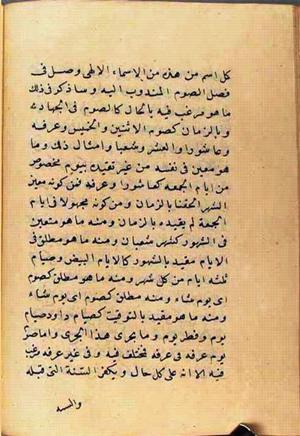 كل اسم من هذه من الاسماء الالهى وصل فى
فصل الصوم المندوب اليه وساذكر فى ذلك
ما هو مرغب فيه بالحال كالصوم فى الجهاد
وبالزمان كصوم الاثنين والخميس وعرفه
وعاشورا والعشر وشعبان وامثال ذلك وما
هو معين فى نفسه من غير تقييد بيوم مخصوص
من ايام الجمعه كعاشورا وعرفه فمن كونه معين
الشهر الحقنا بالزمان ومن كونه مجهولا فى ايام
الجمعة لم يقيده بالزمان ومنه ما هو متعين
فى الشهور كشهر شعبان ومنه ما هو مطلق فى
الايام مقيد بالشهور كالايام البيض وصيام
ثلثه ايام من كل شهر ومنه ما هو مطلق كصوم
اى يوم شاء ومنه مطلق كصوم اى يوم شاء
ومنه ما هو مقيد بالتوقيت كصيام داود صيام
يوم وفطر يوم وما يجرى هذا المجرى واما صوم
يوم عرفه فى عرفه فمختلف فيه وفى غير عرفه مرغب
فيه الا انه على كل حال ويكفر السنة التى قبله
والسنه